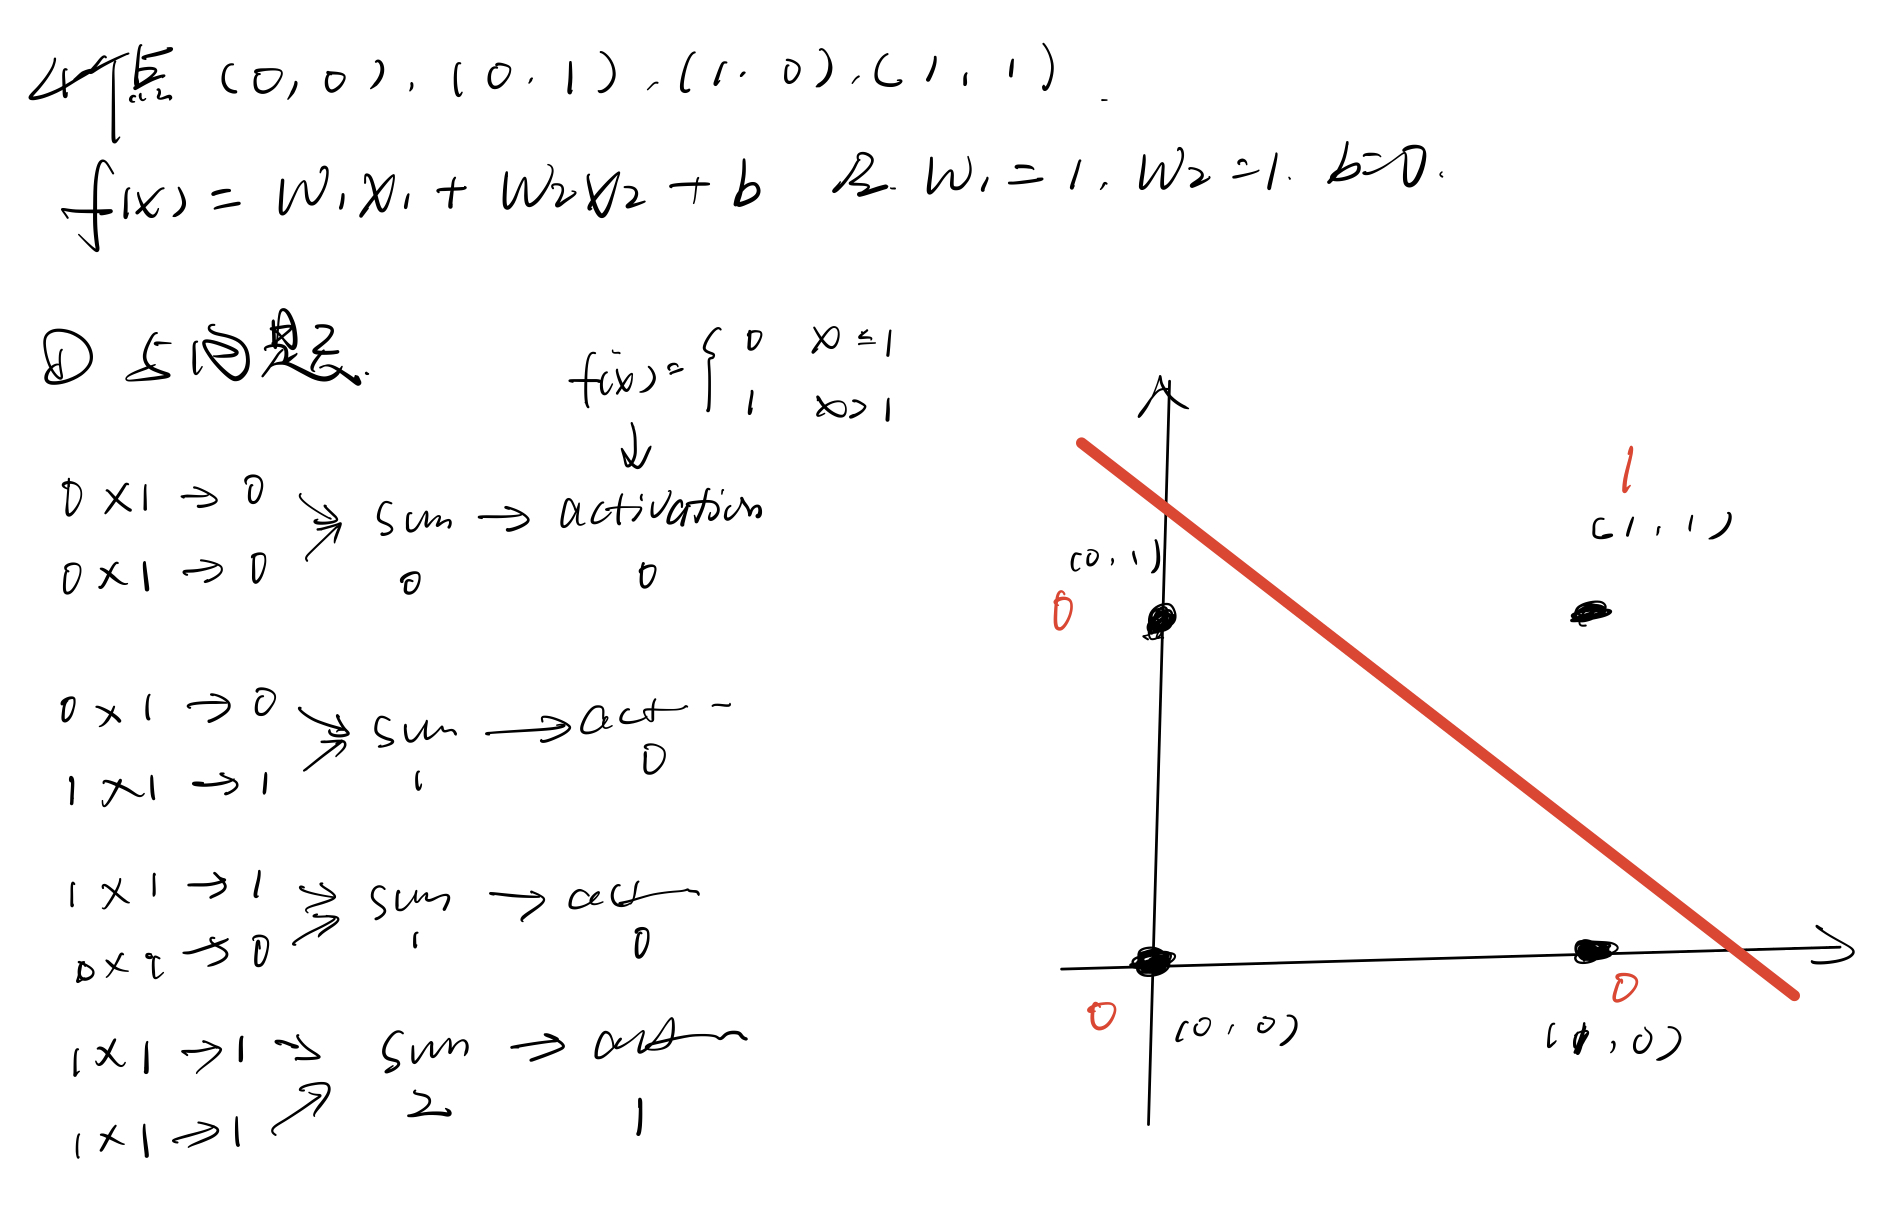 4个点 (0,0), (0.1), (1.0), (1,1).
f(x) = W₁X₁ + W₂X₂ + b 取 W₁=1, W₂=1. b=0.
① 与问题.
f(x)= { 0 x≤1
1 x>1
↓
0×1→0
sum → activation
0×1→0
0 0
0×1→0
sum → act
1×1→1
1 0
1×1→1
sum → act
0×1→0
1 0
1×1→1
sum → act
1×1→1
2 1
1
(1,1)
(0,1)
0
0
(0,0)
0
(1,0)